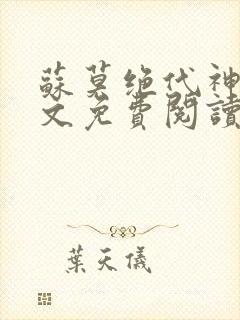 蘇莫绝代神
文免費閱讀
葉天儀